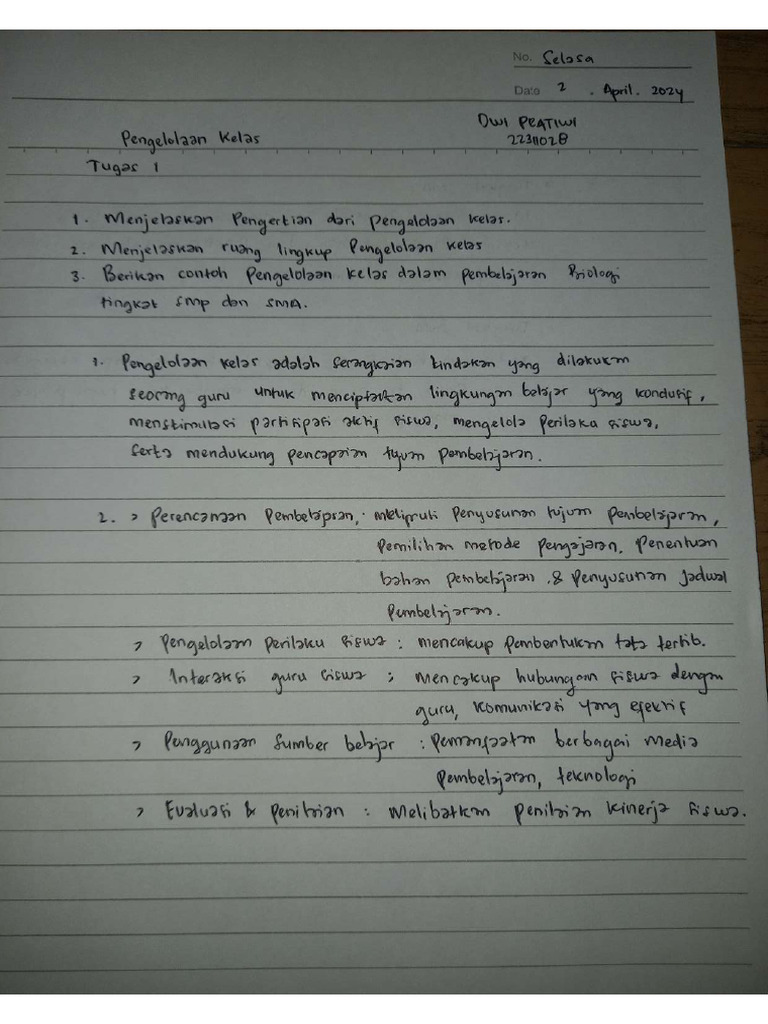 No. Selasa
Date 2 . April . 2024
DWI PRATIWI
Pengelolaan Kelas
22311028
Tugas 1
1. Menjelaskan Pengertian dari Pengelolaan Kelas.
2. Menjelaskan ruang lingkup Pengelolaan Kelas
3. Berikan contoh Pengelolaan Kelas dalam pembelajaran Biologi
tingkat SMP dan SMA.
1. Pengelolaan Kelas adalah serangkaian tindakan yang dilakukan
seorang guru untuk menciptakan lingkungan belajar yang kondusif,
menstimulasi partisipasi aktif siswa, mengelola Perilaku siswa,
serta mendukung pencapaian tujuan Pembelajaran.
2. > Perencanaan Pembelajaran, : Meliputi Penyusunan tujuan Pembelajaran,
Pemilihan metode Pengajaran, Penentuan
bahan pembelajaran & Penyusunan Jadwal
Pembelajaran.
> Pengelolaan Perilaku siswa : mencakup Pembentukan tata tertib.
> Interaksi guru siswa ; Mencakup hubungan siswa dengan
guru, komunikasi yang efektif
> Penggunaan Sumber belajar : Pemanfaatan berbagai Media
Pembelajaran, teknologi
> Evaluasi & Penilaian : Melibatkan penilaian kinerja siswa.